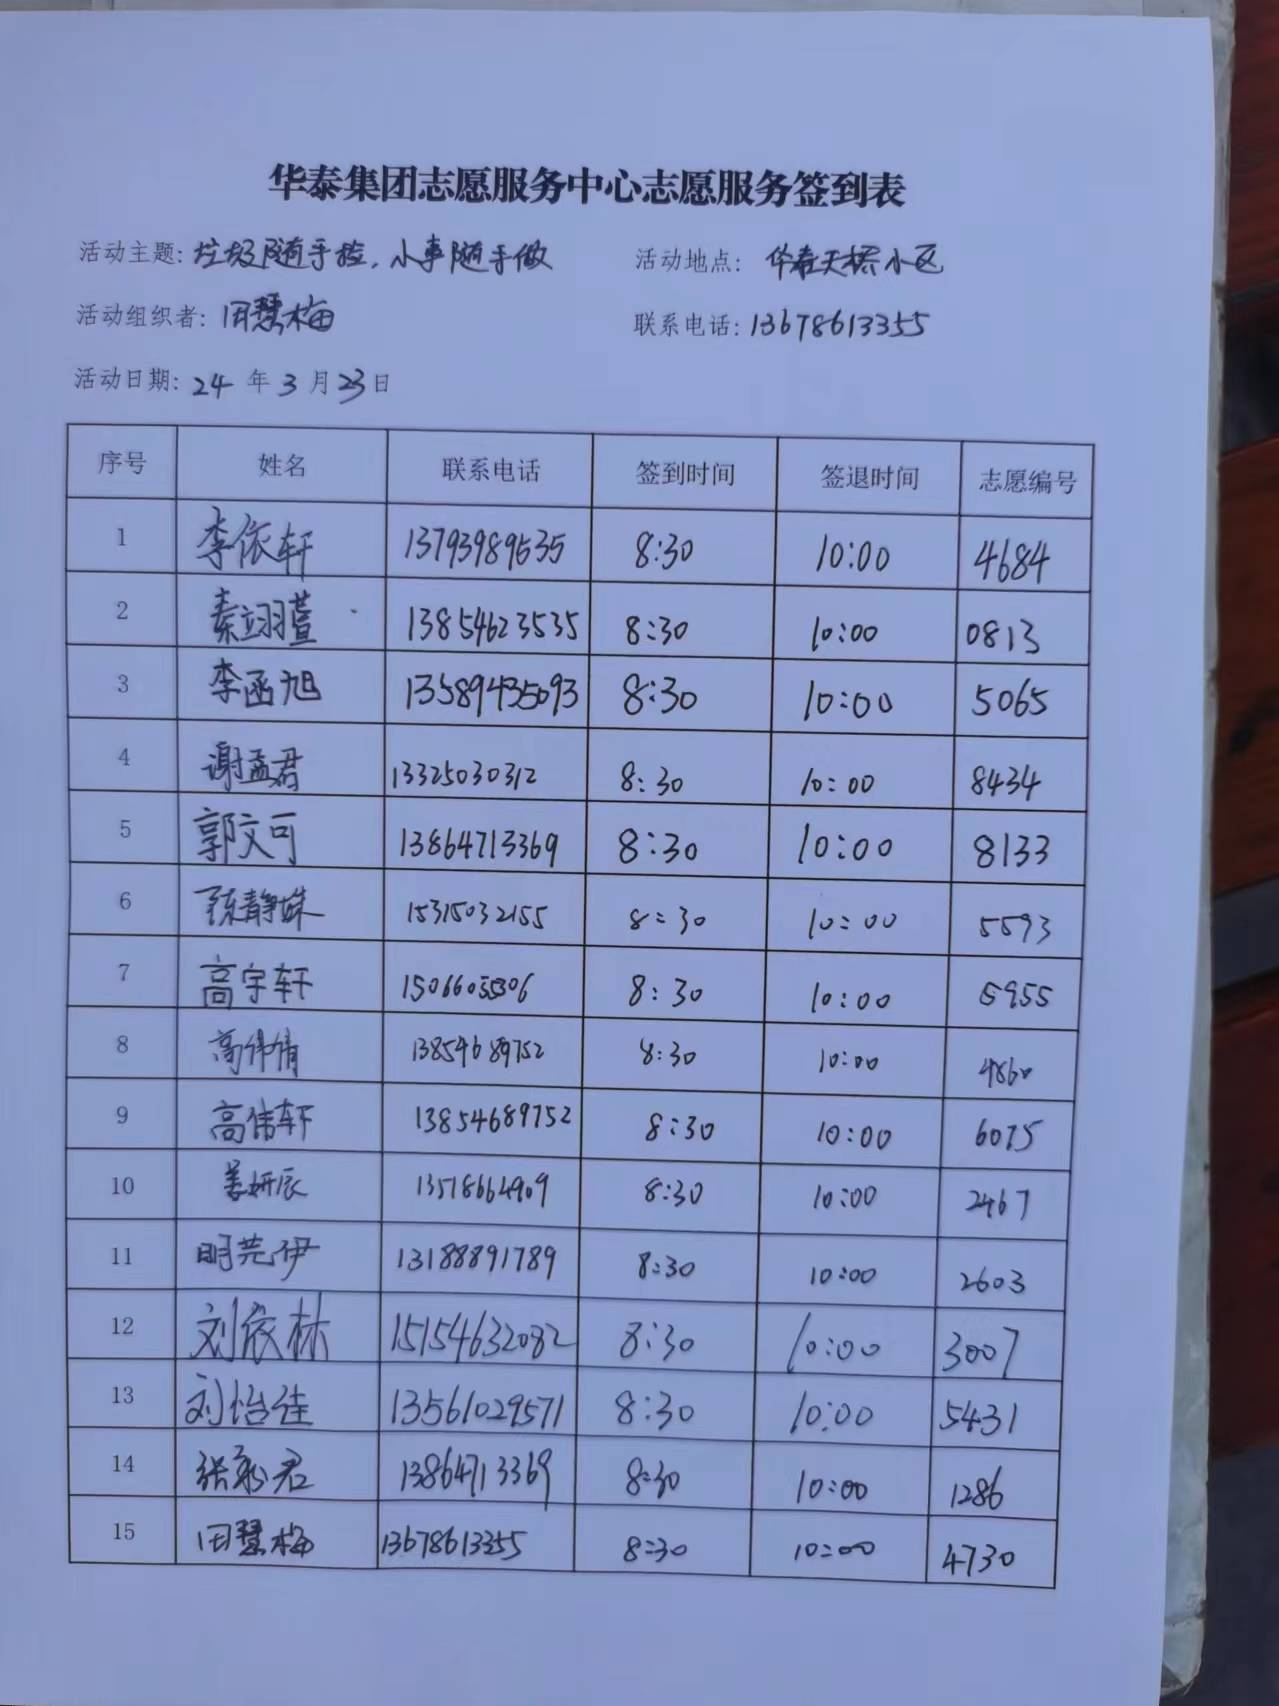 华泰集团志愿服务中心志愿服务签到表
活动主题: 垃圾随手捡，小事随手做 活动地点: 华泰天桥小区
活动组织者: 田慧梅 联系电话: 13678613355
活动日期: 24 年 3 月 23 日
序号 姓名 联系电话 签到时间 签退时间 志愿编号
1 李依轩 13793989535 8:30 10:00 4684
2 秦翊萱 13854623535 8:30 10:00 0813
3 李函旭 13589435093 8:30 10:00 5065
4 谢孟君 13325030312 8:30 10:00 8434
5 郭文可 13864713369 8:30 10:00 8133
6 陈静姝 15315032155 8:30 10:00 5593
7 高宇轩 8:30 10:00 5955
8 高伟倩 13854689752 8:30 10:00 4860
9 高伟轩 13854689752 8:30 10:00 6075
10 姜妍辰 13518664909 8:30 10:00 2467
11 明芫伊 13188891789 8:30 10:00 2603
12 刘依林 15154632082 8:30 10:00 3007
13 刘怡佳 13561029571 8:30 10:00 5431
14 张君 13864713369 8:30 10:00 1286
15 田慧梅 13678613355 8:30 10:00 4730